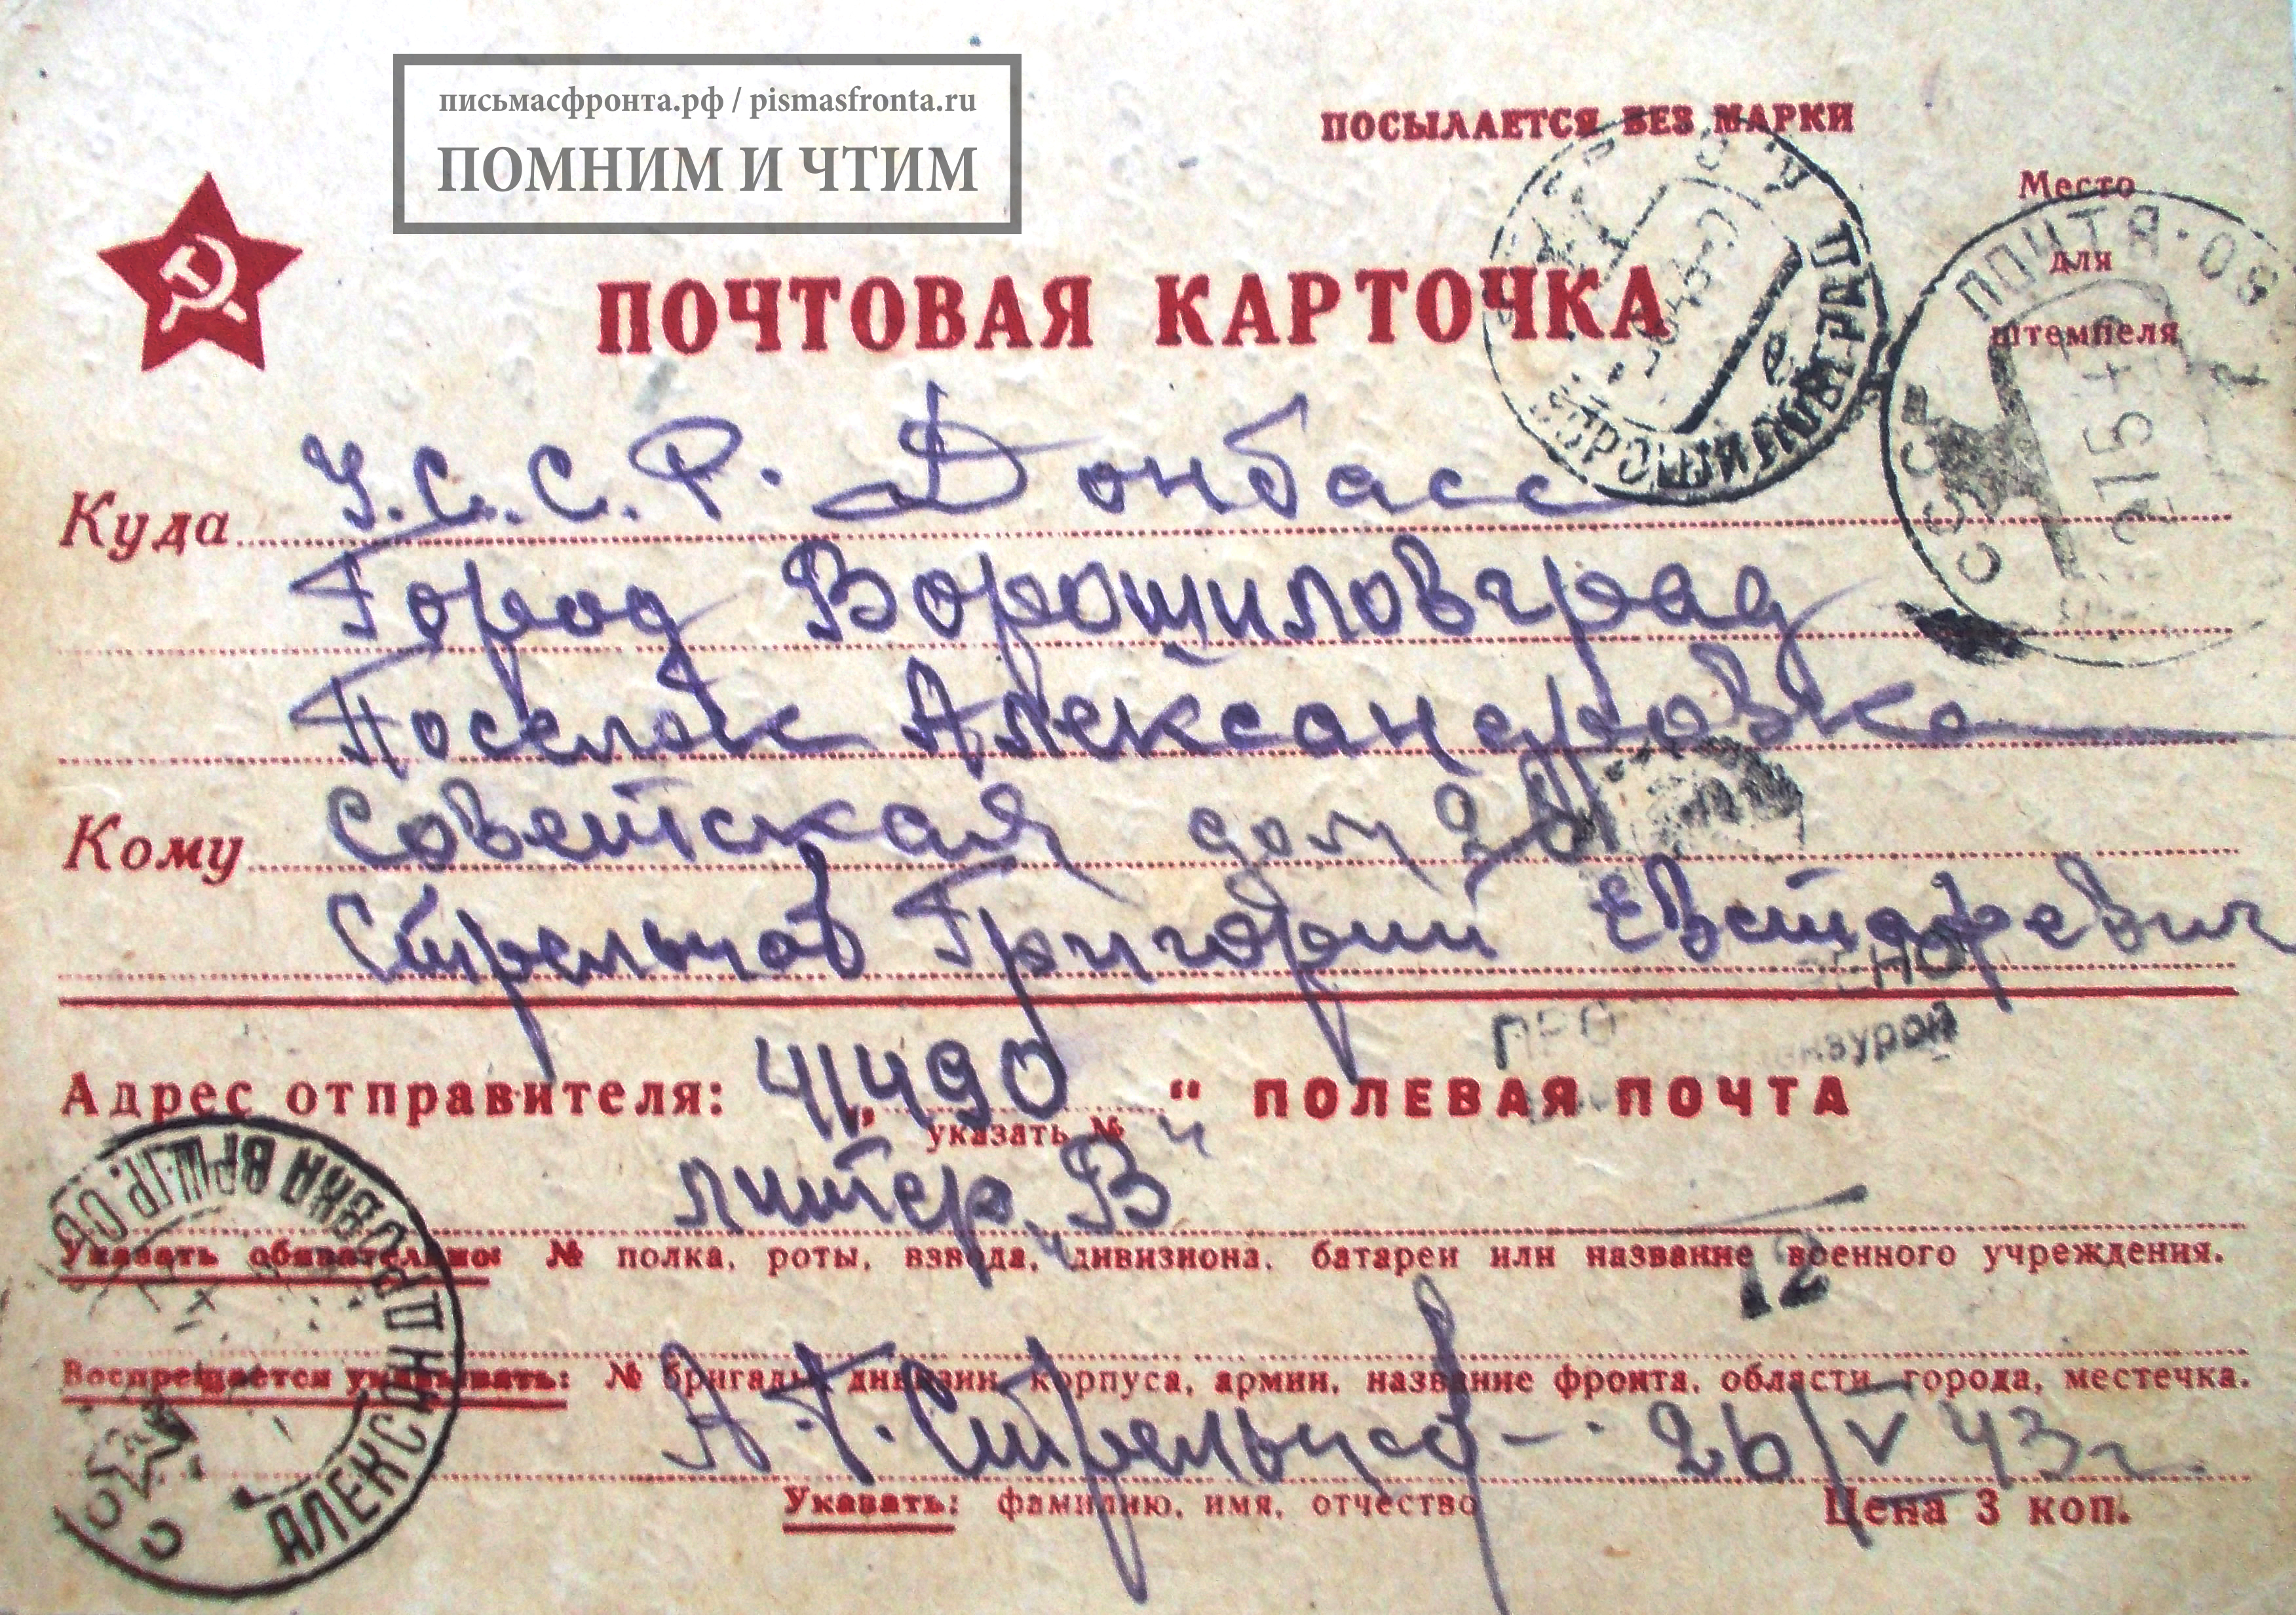 письмасфронта.рф / pismasfronta.ru
ПОМНИМ И ЧТИМ
ПОСЫЛАЕТСЯ БЕЗ МАРКИ
Место
для
штемпеля
ПОЧТОВАЯ КАРТОЧКА
ВОРОШИЛОВГРАД
ПОЧТА
СССР
Куда У.С.С.Р. Донбасс
Город Ворошиловград
Поселок Александровка
Кому Советская дом 20
Стрельцов Григорий
цензурой
Адрес отправителя: 41490 " ПОЛЕВАЯ ПОЧТА
указать №
литер „В"
Указать обязательно: № полка, роты, взвода, дивизиона, батареи или название военного учреждения.
12
Воспрещается указывать: № бригады, дивизии, корпуса, армии, название фронта, области, города, местечка.
А.Г. Стрельцов - 26/V 43г.
Указать: фамилию, имя, отчество
Цена 3 коп.